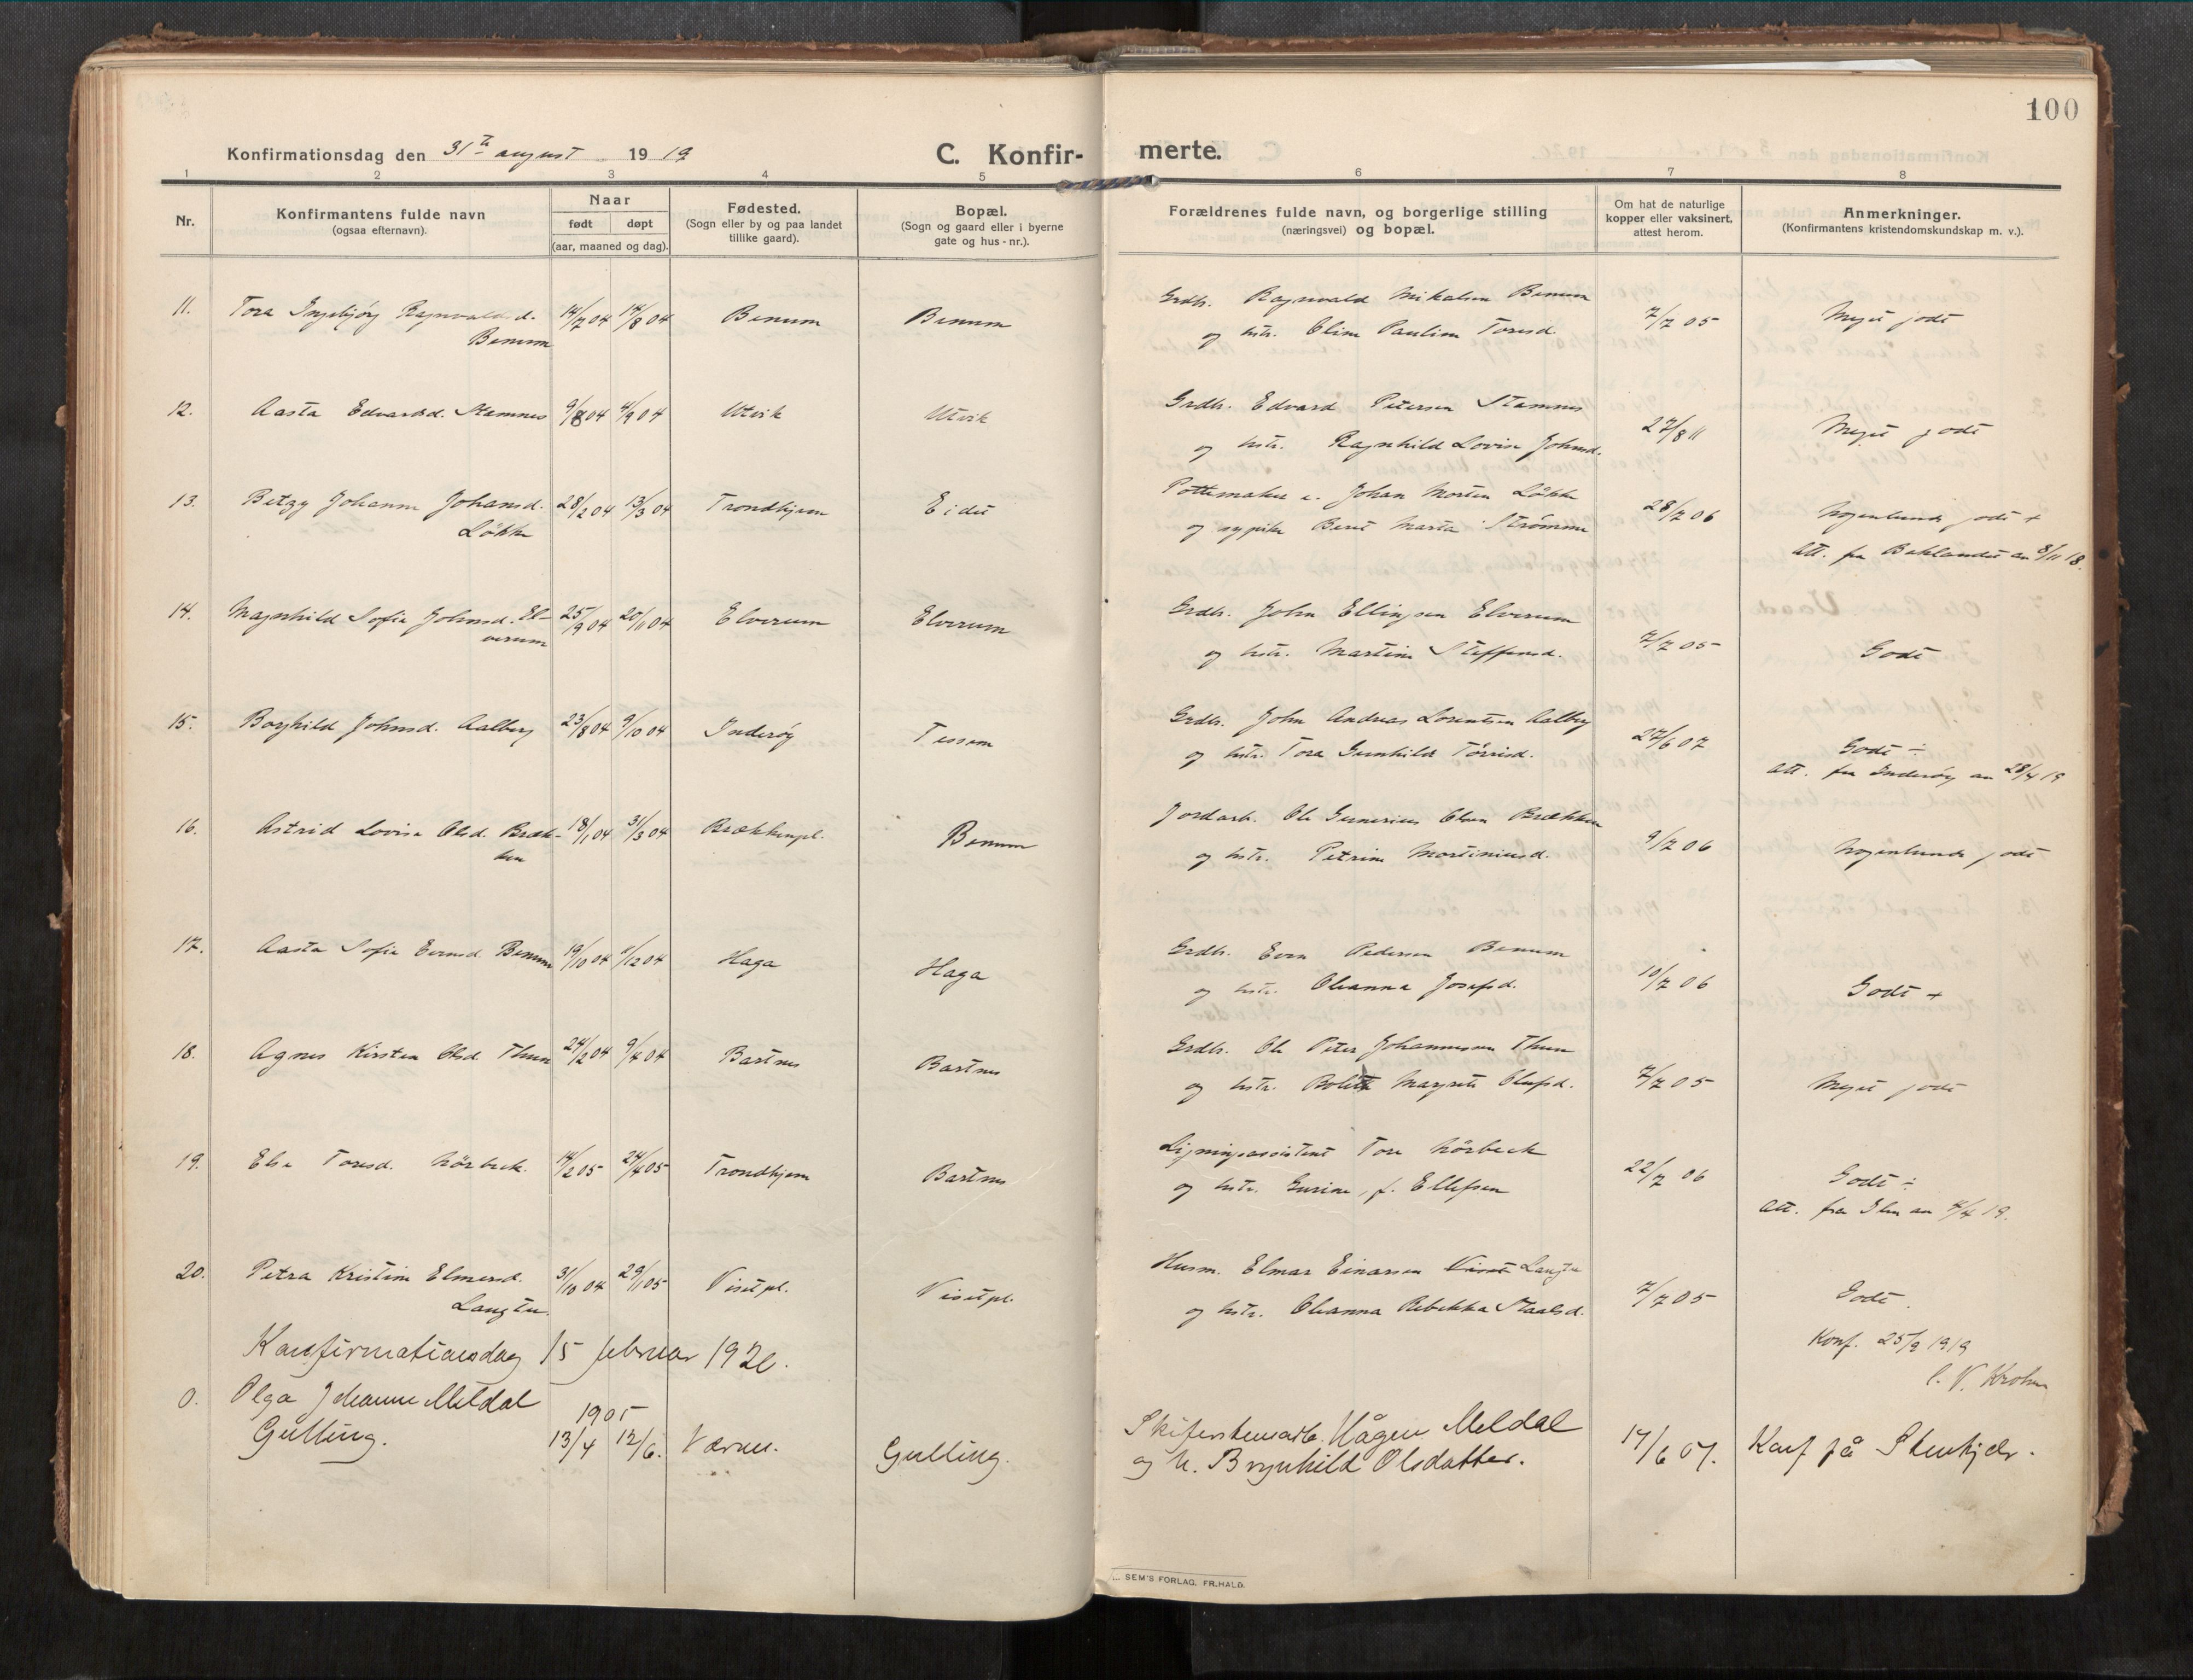 100
Konfirmationsdag den 31te august 1919
C. Konfir-
merte.
1 2 3 4 5 6 7 8
Nr.
Konfirmantens fulde navn
(ogsaa efternavn).
Naar
født døpt
(aar, maaned og dag).
Fødested.
(Sogn eller by og paa landet
tillike gaard).
Bopæl.
(Sogn og gaard eller i byerne
gate og hus-nr.).
Forældrenes fulde navn, og borgerlige stilling
(næringsvei) og bopæl.
Om hat de naturlige
kopper eller vaksinert,
attest herom.
Anmerkninger.
(Konfirmantens kristendomskundskap m. v.).
11. Tora Ingebjørg Ragnvaldsd. 14/7 04 14/8 04 Benum Benum Grdb. Ragnvald Mikalsen Benum 7/7 05 Meget godt
Benum og hstr. Eline Pauline Toresd.
12. Aasta Edvardsd. Stamnes 9/8 04 4/9 04 Utvik Utvik Grdb. Edvard Petersen Stamnes 27/8 11 Meget godt
og hstr. Ragnhild Lovise Johnsd.
13. Betzy Johanne Johansd. 28/2 04 13/3 04 Trondhjem Eidet Pottemaker e. Johan Morten Løkke 28/7 06 Nogenlunde godt +
Løkke og sypike Beret Marta Strømme Att. fra Baklandet an 8/11 18.
14. Magnhild Sofie Johnsd. El- 25/9 04 20/11 04 Elverum Elverum Grdb. John Ellingsen Elverum 7/7 05 Godt
verum og hstr. Martine Steffensd.
15. Borghild Johnsd. Aalberg 23/8 04 9/10 04 Inderøy Tessem Grdb. John Andreas Lorentsen Aalberg 27/6 07 Godt ÷
og hstr. Tora Gunhild Tørrisd. Att. fra Inderøy an 28/4 19
16. Astrid Lovise Olsd. Bræk- 18/1 04 31/3 04 Brækkenpl. Benum Jordarb. Ole Gunerius Olsen Brækken 9/7 06 Nogenlunde godt
ken og hstr. Petrine Martiniusd.
17. Aasta Sofie Evensd. Benum 19/10 04 11/12 04 Haga Haga Grdb. Even Pedersen Benum 10/7 06 Godt +
og hstr. Oleanna Josefsd.
18. Agnes Kirsten Olsd. Thun 24/2 04 9/4 04 Bartnes Bartnes Grdb. Ole Peter Johannessen Thun 7/7 05 Meget godt
og hstr. Bolette Margrete Olufsd.
19. Else Toresd. Nørbeck 14/2 05 24/4 05 Trondhjem Bartnes Ligningsassistent Tore Nørbeck 22/7 06 Godt ÷
og hstr. Gurine, f. Ellefsen Att. fra Ilen an 4/4 19.
20. Petra Kristine Elmersd. 31/10 04 29/1 05 Visetpl. Visetpl. Husm. Elmar Einarsen Viset Langtu 7/7 05 Godt.
Langtu. og hstr. Oleanna Rebekka Staalsd.
Konf. 25/9 1919
C. V. Krohn
Konfirmationsdag 15 februar 1920.
0. Olga Johanne Meldal 1905
Gulling. 13/4 12/6. Værnes. Gulling. Skiferstensarb. Hågen Meldal 17/6 07. Konf på Stenkjær.
og h. Brynhild Olsdatter.
SEM'S FORLAG, FR.HALD.